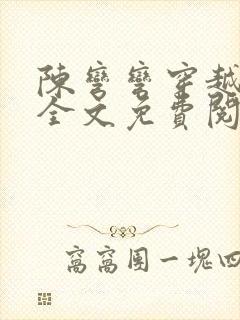 陳彎彎穿越
全文免費閱
窩窩團一塊四